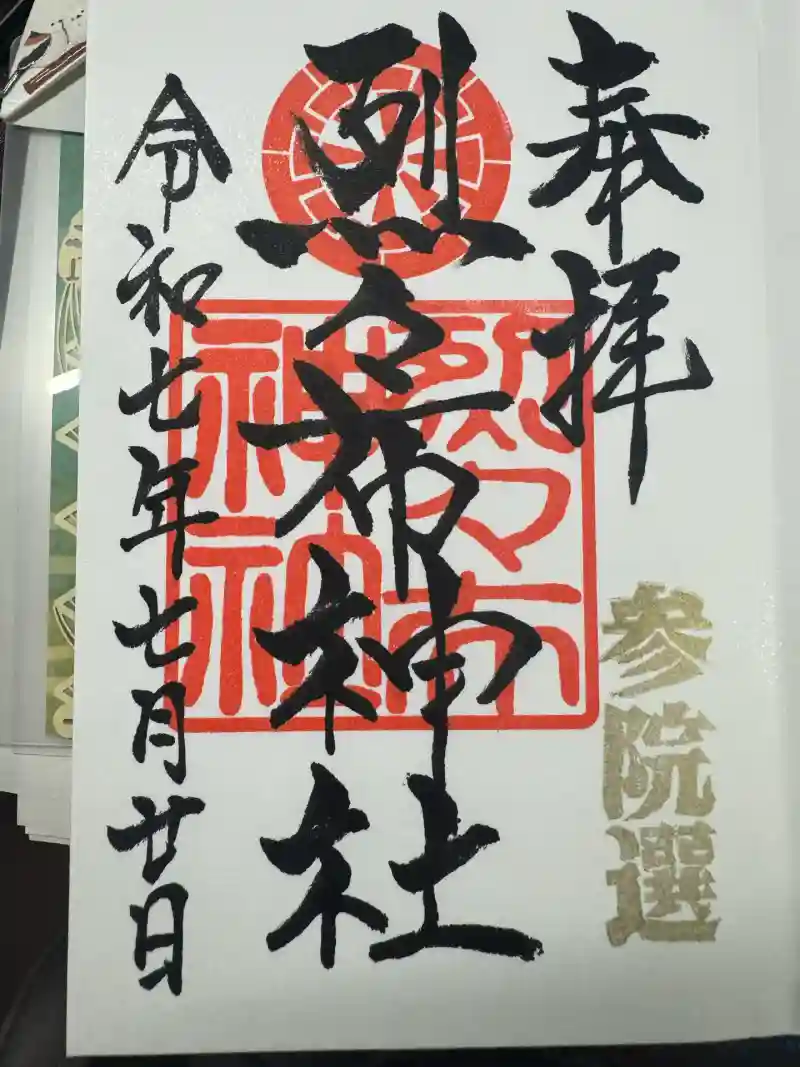 奉拝
参院選
烈々布神社
烈々布
神社
令和七年七月廿日